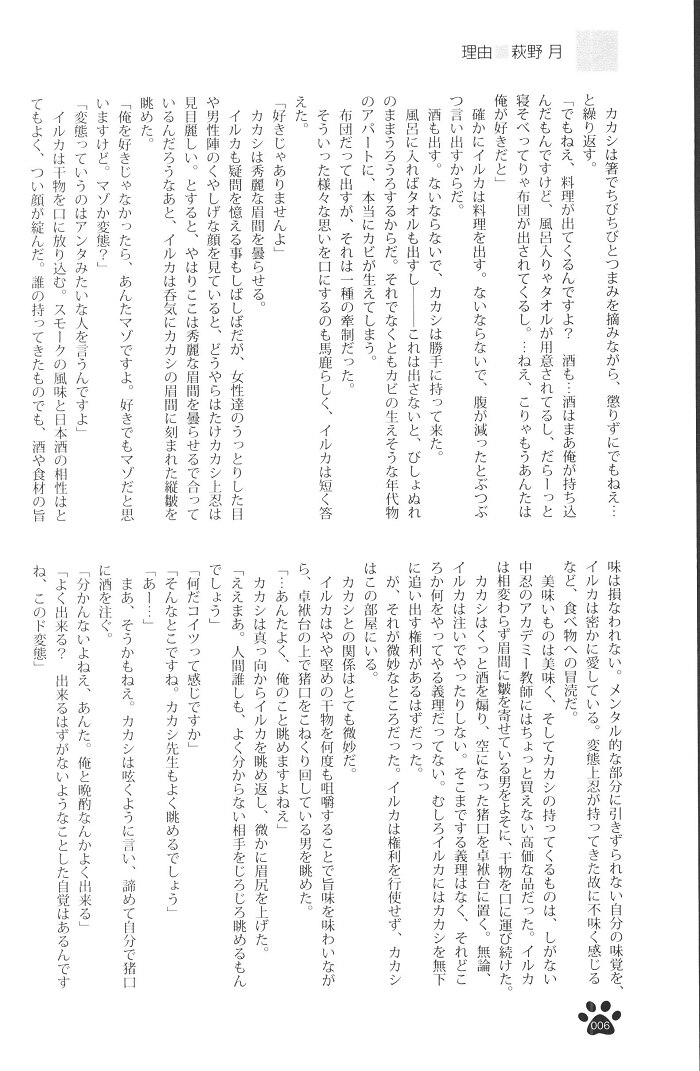 理由 萩野 月
　カカシは箸でちびちびとつまみを摘みながら、懲りずにでもねえ…
と繰り返す。
「でもねえ、料理が出てくるんですよ？　酒も…酒はまあ俺が持ち込
んだもんですけど、風呂入りゃタオルが用意されてるし、だらーっと
寝そべってりゃ布団が出されてくるし。…ねえ、こりゃもうあんたは
俺が好きだと」
　確かにイルカは料理を出す。ないならないで、腹が減ったとぶつぶ
つ言い出すからだ。
　酒も出す。ないならないで、カカシは勝手に持って来た。
　風呂に入ればタオルも出すし――これは出さないと、びしょぬれ
のままうろうろするからだ。それでなくともカビの生えそうな年代物
のアパートに、本当にカビが生えてしまう。
　布団だって出すが、それは一種の牽制だった。
　そういった様々な思いを口にするのも馬鹿らしく、イルカは短く答
えた。
「好きじゃありませんよ」
　カカシは秀麗な眉間を曇らせる。
　イルカも疑問を憶える事もしばしばだが、女性達のうっとりした目
や男性陣のくやしげな顔を見ていると、どうやらはたけカカシ上忍は
見目麗しい。とすると、やはりここは秀麗な眉間を曇らせるで合って
いるんだろうなあと、イルカは呑気にカカシの眉間に刻まれた縦皺を
眺めた。
「俺を好きじゃなかったら、あんたマゾですよ。好きでもマゾだと思
いますけど。マゾか変態？」
「変態っていうのはアンタみたいな人を言うんですよ」
　イルカは干物を口に放り込む。スモークの風味と日本酒の相性はと
てもよく、つい顔が綻んだ。誰の持ってきたものでも、酒や食材の旨
味は損なわれない。メンタル的な部分に引きずられない自分の味覚を、
イルカは密かに愛している。変態上忍が持ってきた故に不味く感じる
など、食べ物への冒涜だ。
　美味いものは美味く、そしてカカシの持ってくるものは、しがない
中忍のアカデミー教師にはちょっと買えない高価な品だった。イルカ
は相変わらず眉間に皺を寄せている男をよそに、干物を口に運び続けた。
　カカシはくっと酒を煽り、空になった猪口を卓袱台に置く。無論、
イルカは注いでやったりしない。そこまでする義理はなく、それどこ
ろか何をやってやる義理だってない。むしろイルカにはカカシを無下
に追い出す権利があるはずだった。
　が、それが微妙なところだった。イルカは権利を行使せず、カカシ
はこの部屋にいる。
　カカシとの関係はとても微妙だ。
　イルカはやや堅めの干物を何度も咀嚼することで旨味を味わいなが
ら、卓袱台の上で猪口をこねくり回している男を眺めた。
「…あんたよく、俺のこと眺めますよねえ」
　カカシは真っ向からイルカを眺め返し、微かに眉尻を上げた。
「ええまあ。人間誰しも、よく分からない相手をじろじろ眺めるもん
でしょう」
「何だコイツって感じですか」
「そんなとこですね。カカシ先生もよく眺めるでしょう」
「あー…」
　まあ、そうかもねえ。カカシは呟くように言い、諦めて自分で猪口
に酒を注ぐ。
「分かんないよねえ、あんた。俺と晩酌なんかよく出来る」
「よく出来る？　出来るはずがないようなことした自覚はあるんです
ね、このド変態」
006